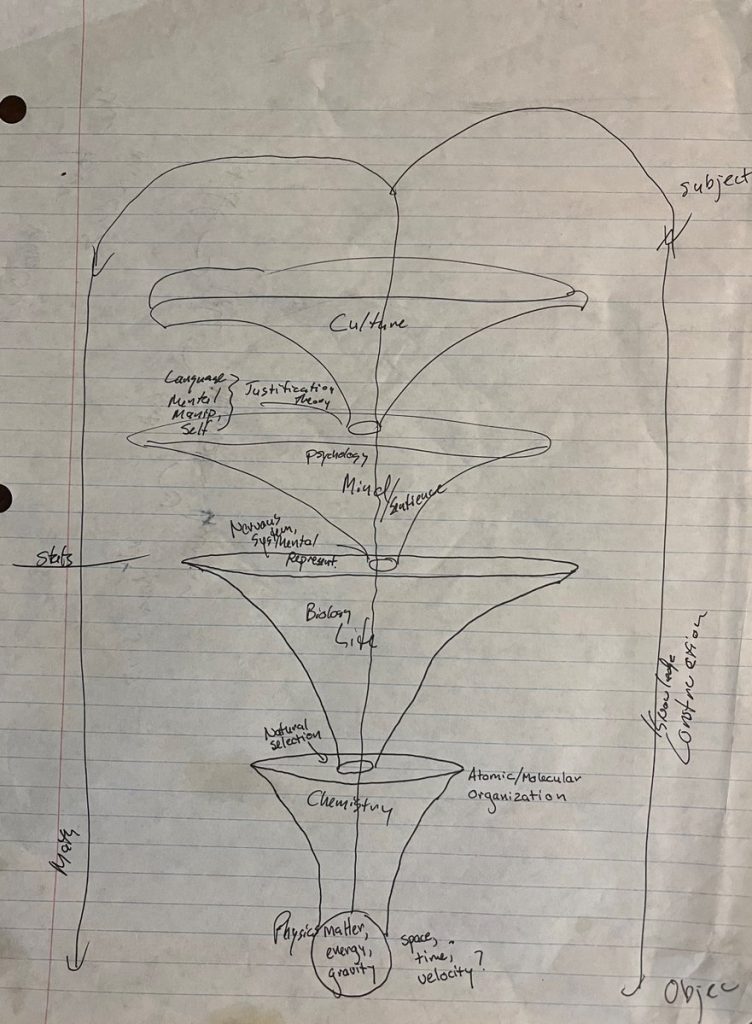 subject
Culture
Language
Mental
Manip,
Self
Justification
Theory
Psychology
Mind/Sentience
Nervous
System,
Mental
Represent.
Stats
Biology
Life
Knowledge
Construction
Natural
selection
Atomic/Molecular
Organization
Chemistry
Math
Physics
Matter,
energy,
gravity
space,
time,
velocity?
Objec